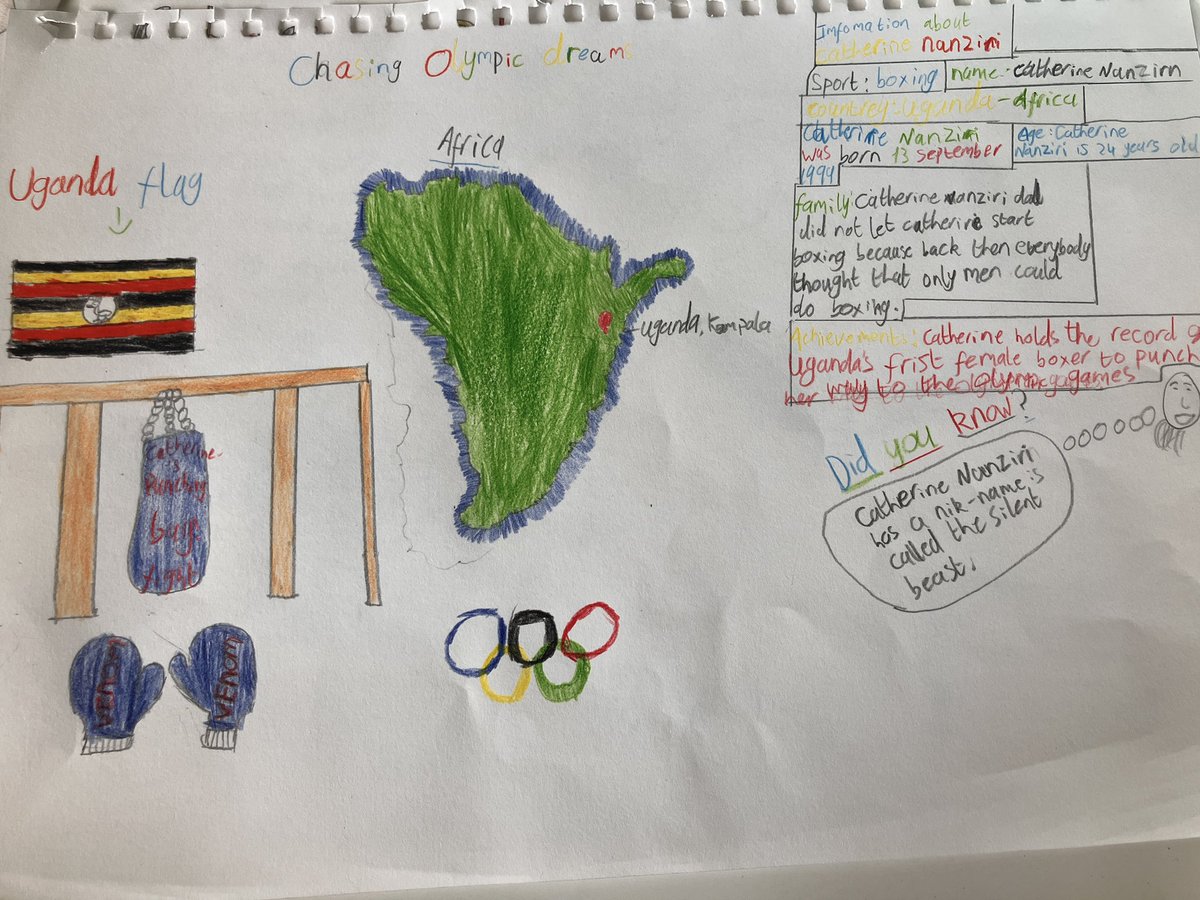 Chasing Olympic dreams
Uganda flag
Africa
uganda, Kampala
Catherine
is
Punching
bag
fight
VENOM
VENOM
Infomation about
catherine nanziri
Sport: boxing
name: catherine Nanzirn
countrey: uganda - Africa
Catherine Nanziri
was born 13 september
1999
Age: Catherine
Nanziri is 24 years old
family: Catherine nanziri dad
did not let catherine start
boxing because back then everybody
thought that only men could
do boxing.
Achievements: Catherine holds the record of
Uganda's frist female boxer to punch
her way to the olympic games
Did you know?
Catherine Nanziri
has a nik-name is
called the silent
beast.